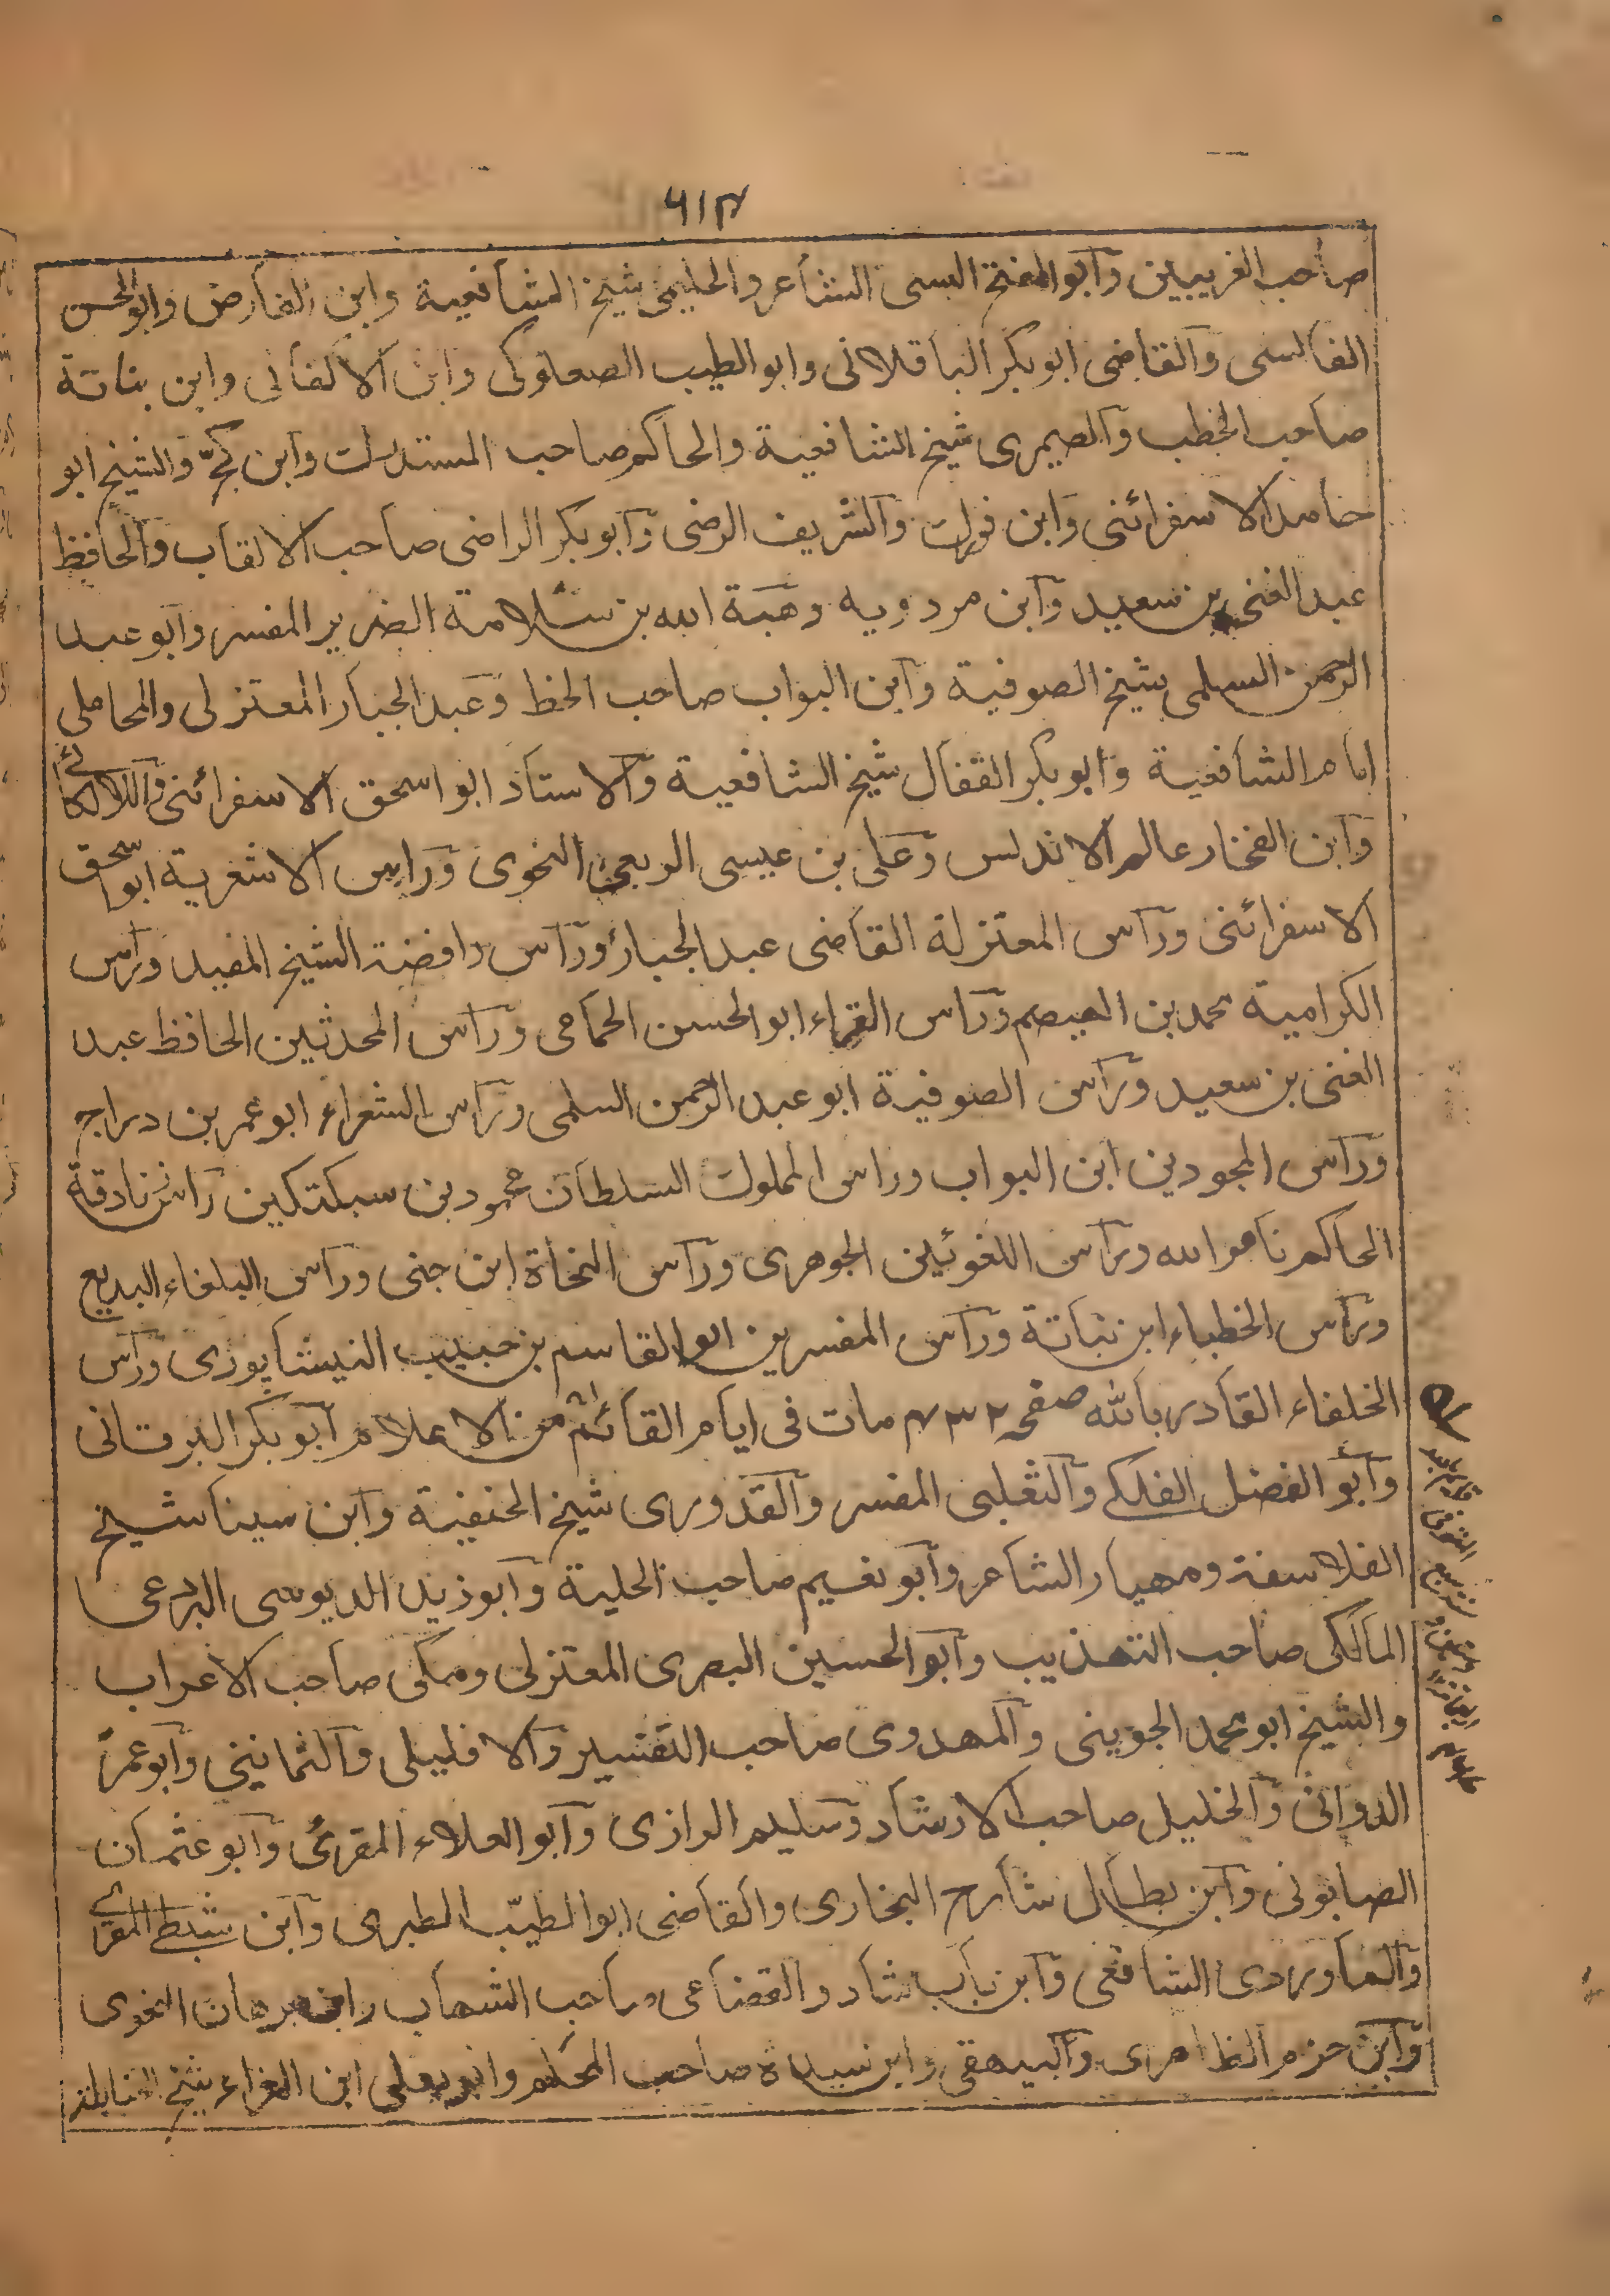 ٦١٣
صاحب الغريبين وأبو الفتح البستى الشاعر والحليمى شيخ الشافعية وابن الفارض وابو الحسن
القابسى والقاضى ابوبكر الباقلانى وابو الطيب الصعلوكى وابن الاكفانى وابن نباتة
صاحب الخطب والصيمرى شيخ الشافعية والحاكم صاحب المستدرك وابن كجّ والشيخ ابو
حامد الاسفرائنى وابن فورك والشريف الرضى وابوبكر الراضى صاحب الالقاب والحافظ
عبد الغنى بن سعيد وابن مردويه وهبة الله بن سلامة الضرير المفسر وابو عبد
الرحمن السلمى شيخ الصوفية وابن البواب صاحب الخط وعبد الجبار المعتزلى والمحاملى
امام الشافعية وابوبكر القفال شيخ الشافعية والاستاذ ابو اسحق الاسفرائنى واللالكائى
وابن الفخار عالم الاندلس وعلى بن عيسى الربعى النحوى ورأس الاشعرية ابو اسحق
الاسفرائنى ورأس المعتزلة القاضى عبد الجبار ورأس رافضة الشيخ المفيد ورأس
الكرامية محمد بن الهيصم ورأس القراء ابو الحسن الحمامى ورأس المحدثين الحافظ عبد
الغنى بن سعيد ورأس الصوفية ابو عبد الرحمن السلمى ورأس الشعراء ابو عمر بن دراج
ورأس المجودين ابن البواب وراس الملوك السلطان محمود بن سبكتكين رأس زنادقة
الحاكم بامر الله ورأس اللغوئين الجوهرى ورأس النحاة ابن جنى ورأس البلغاء البديع
ورأس الخطباء ابن نباتة ورأس المفسرين ابو القاسم بن حبيب النيشاپورى ورأس
الخلفاء القادر بالله صفحه ٤٣٢ مات فى ايام القائم من الاعلام ابوبكر البرقانى
وأبو الفضل الفلكى والثعلبى المفسر والقدورى شيخ الحنفية وابن سينا شيخ
الفلاسفة ومهيار الشاعر وأبو نعيم صاحب الحلية وأبو زيد الدبوسى البرعى
المالكى صاحب التهذيب وأبو الحسين البصرى المعتزلى ومكى صاحب الاعراب
والشيخ ابو محمد الجوينى والمهدوى صاحب التفسير والافليلى والثمانينى وأبو عمرو
الدوانى والخليل صاحب الارشاد وسليم الرازى وأبو العلاء المقرئ وأبو عثمان
الصابونى وابن بطال شارح البخارى والقاضى ابو الطيّب الطبرى وابن شيطى المقرى
والماوردى الشافعى وابن بابشاد والقضاعى صاحب الشهاب وابن برهان النحوى
وابن حزم الظاهرى والبيهقى وابن سيدة صاحب المحكم وابو يعلى ابن الفراء شيخ الحنابلة